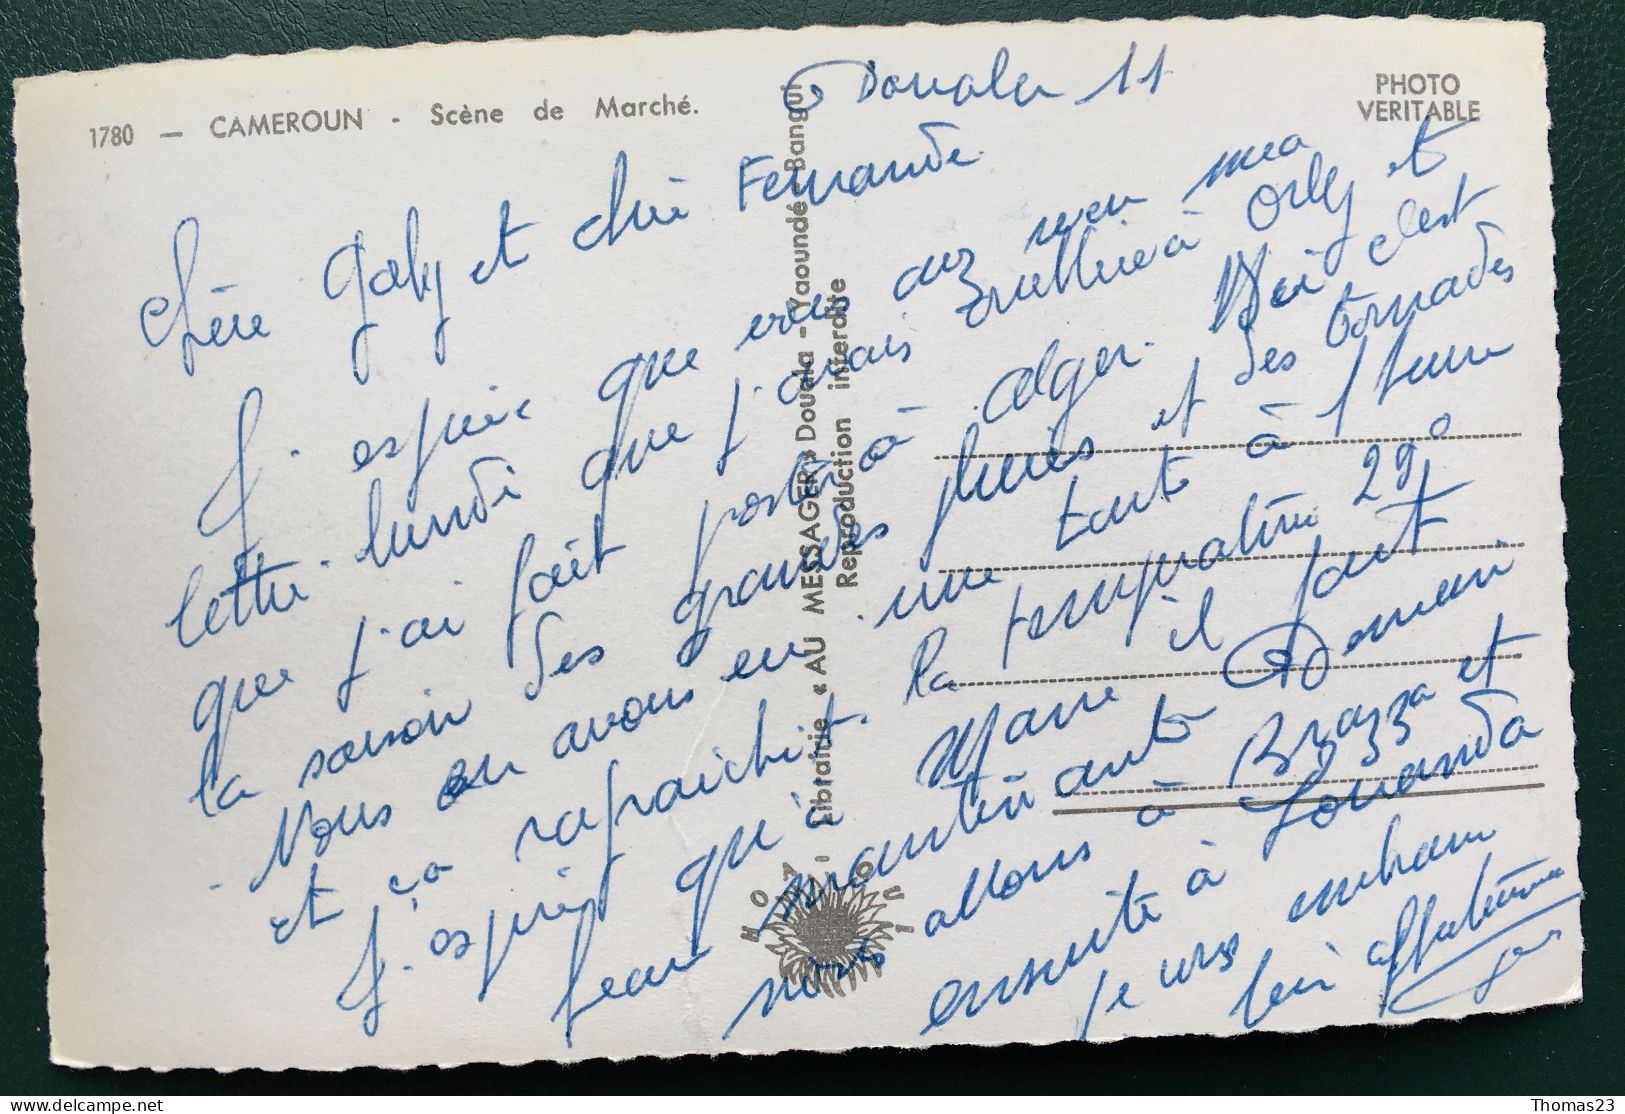 1780 — CAMEROUN - Scène de Marché.
PHOTO
VERITABLE
Librairie « AU MESSAGER » Douala - Yaoundé - Bangui
Reproduction interdite
Douala 11
Chère Gaby et chère Fernande
J'espère que vous avez reçu ma
lettre lundi que j'avais oubliée à Orly et
que j'ai fait poster à Alger. Ici c'est
la saison des grandes pluies et des tornades
Nous en avons eu une tout à l'heure
et ça rafraichit. la température 29°
J'espère qu'à il fait
beau maintenant Demain
nous allons à Brazza et
ensuite à Louanda
Je vous embrasse
bien affectueusement